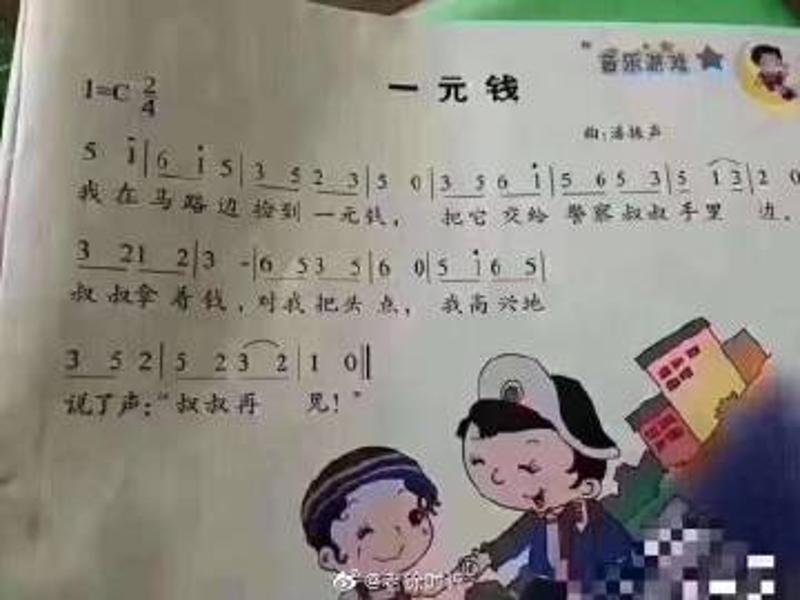 音乐游戏
一元钱
1=C 2/4
曲:潘振声
5 i | 6 i 5 | 3 5 2 3 | 5 0 | 3 5 6 i | 5 6 5 3 | 5 1 3 | 2 0
我在马路边捡到一元钱, 把它交给警察叔叔手里边。
3 2 1 2 | 3 - | 6 5 3 5 | 6 0 | 5 i 6 5 |
叔叔拿着钱,对我把头点, 我高兴地
3 5 2 | 5 2 3 2 | 1 0 ‖
说了声:“叔叔再见!”